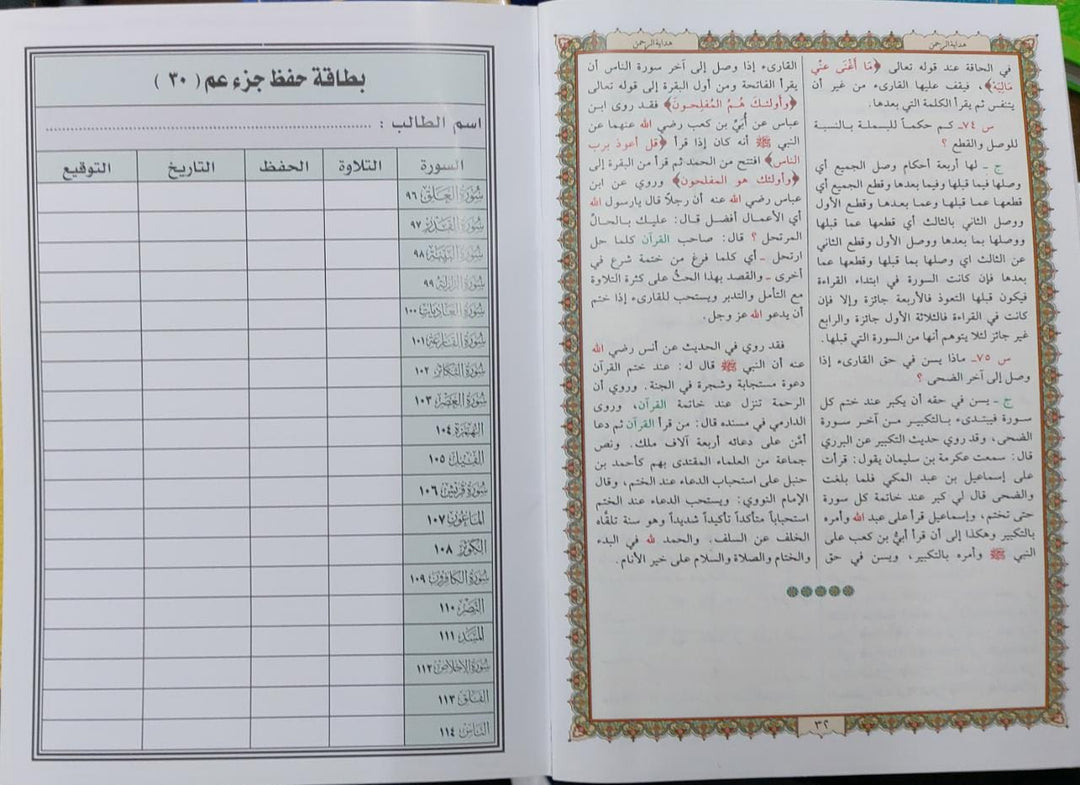 هداية الرحمن
هداية الرحمن
في الحاقة عند قوله تعالى ﴿مَا أَغْنَى عَنِّي
مَالِيَهْ﴾، فيقف عليها القارىء من غير أن
يتنفس ثم يقرأ الكلمة التي بعدها.
س ٧٤ـ كم حكماً للبسملة بالنسبة
للوصل والقطع ؟
ج ـ لها أربعة أحكام وصل الجميع أي
وصلها فيما قبلها وفيما بعدها وقطع الجميع أي
قطعها عما قبلها وعما بعدها وقطع الأول
ووصل الثاني بالثالث أي قطعها عما قبلها
ووصلها بما بعدها ووصل الأول وقطع الثاني
عن الثالث اي وصلها بما قبلها وقطعها عما
بعدها فإن كانت السورة في ابتداء القراءة
فيكون قبلها التعوذ فالأربعة جائزة وإلا فإن
كانت في القراءة فالثلاثة الأول جائزة والرابع
غير جائز لئلا يتوهم أنها من السورة التي قبلها.
س ٧٥ـ ماذا يسن في حق القارىء إذا
وصل إلى آخر الضحى ؟
ج ـ يسن في حقه أن يكبر عند ختم كل
سورة فيبتدىء بالتكبير من آخر سورة
الضحى، وقد روي حديث التكبير عن البزي
قال: سمعت عكرمة بن سليمان يقول: قرأت
على إسماعيل بن عبد المكي فلما بلغت
والضحى قال لي كبر عند خاتمة كل سورة
حتى تختم، وإسماعيل قرأ على عبد الله وأمره
بالتكبير وهكذا إلى أن قرأ أبيُّ بن كعب على
النبي ﷺ وأمره بالتكبير، ويسن في حق
القارىء إذا وصل إلى آخر سورة الناس أن
يقرأ الفاتحة ومن أول البقرة إلى قوله تعالى
﴿وأولئكَ هُمُ المُفلِحونَ﴾ فقد روى ابن
عباس عن أُبَيِّ بن كعب رضي الله عنهما عن
النبي ﷺ أنه كان إذا قرأ ﴿قل أعوذ برب
الناس﴾ افتتح من الحمد ثم قرأ من البقرة إلى
﴿وأولئك هو المفلحون﴾ وروي عن ابن
عباس رضي الله عنه أن رجلاً قال يارسول الله
أي الأعمال أفضل قال: عليك بالحالِّ
المرتحل ؟ قال: صاحب القرآن كلما حل
ارتحل ـ أي كلما فرغ من ختمة شرع في
أخرى ـ والقصد بهذا الحثُّ على كثرة التلاوة
مع التأمل والتدبر ويستحب للقارىء إذا ختم
أن يدعو الله عز وجل.
فقد روي في الحديث عن أنس رضي الله
عنه أن النبي ﷺ قال له: عند ختم القرآن
دعوة مستجابة وشجرة في الجنة. وروي أن
الرحمة تنزل عند خاتمة القرآن، وروى
الدارمي في مسنده قال: من قرأ القرآن ثم دعا
أمَّن على دعائه أربعة آلاف ملك. ونص
جماعة من العلماء المقتدى بهم كأحمد بن
حنبل على استحباب الدعاء عند الختم، وقال
الإمام النووي: ويستحب الدعاء عند الختم
استحباباً متأكداً تأكيداً شديداً وهو سنة تلقَّاه
الخلف عن السلف. والحمد لله في البدء
والختام والصلاة والسلام على خير الأنام.
٣٢
بطاقة حفظ جزء عم ( ٣٠ )
اسم الطالب : ........................................
السورة التلاوة الحفظ التاريخ التوقيع
سُورَةُ العَلَق ٩٦
سُورَةُ القَدْرِ ٩٧
سُورَةُ البَيِّنَة ٩٨
سُورَةُ الزلزلة ٩٩
سُورَةُ العَاديَات ١٠٠
سُورَةُ القَارعَة ١٠١
سُورَةُ التَّكاثُر ١٠٢
سُورَةُ العَصْر ١٠٣
الهُمَزَة ١٠٤
الفِيل ١٠٥
سُورَة قُرَيْش ١٠٦
المَاعُون ١٠٧
الكَوثَر ١٠٨
سُورَةُ الكافِرون ١٠٩
النَّصْر ١١٠
المَسَد ١١١
سُورَة الإخلاص ١١٢
الفَلَق ١١٣
النَّاس ١١٤